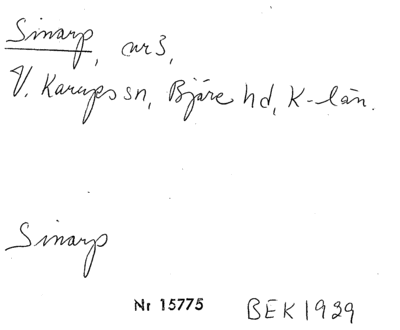 Sinarp, nr 3,
V. Karups sn, Bjäre hd, K-län.
Sinarp
Nr 15775 BEK 1929